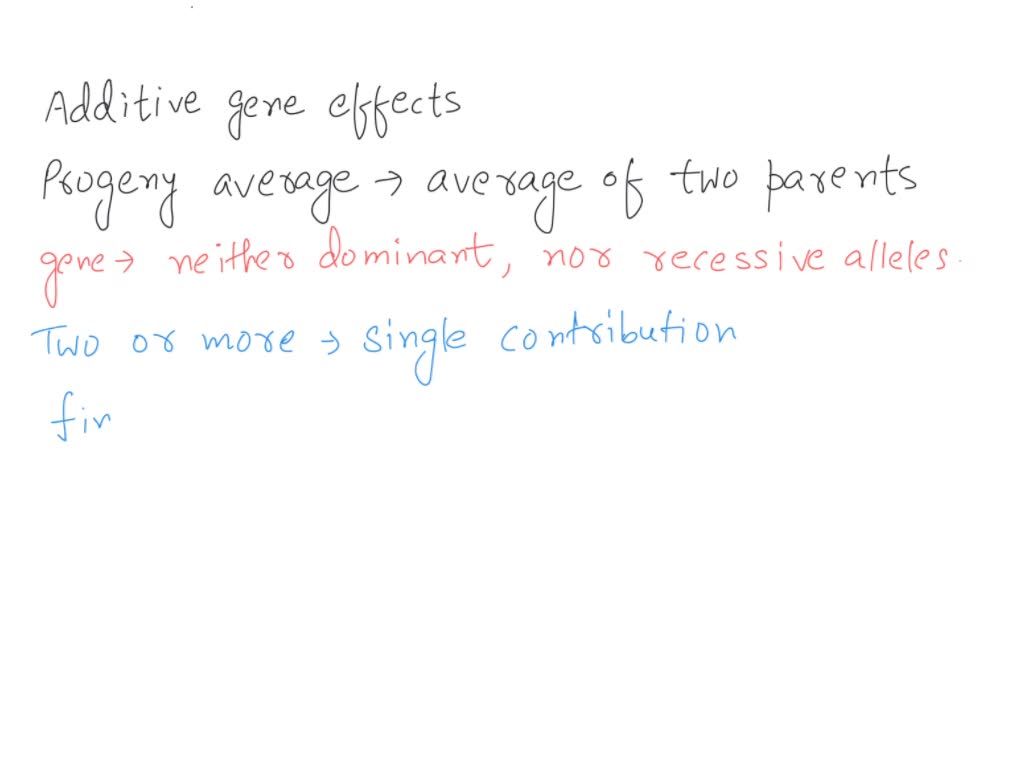 Additive gene effects
Progeny average → average of two parents
gene → neither dominant, nor recessive alleles.
Two or more → single contribution
fin